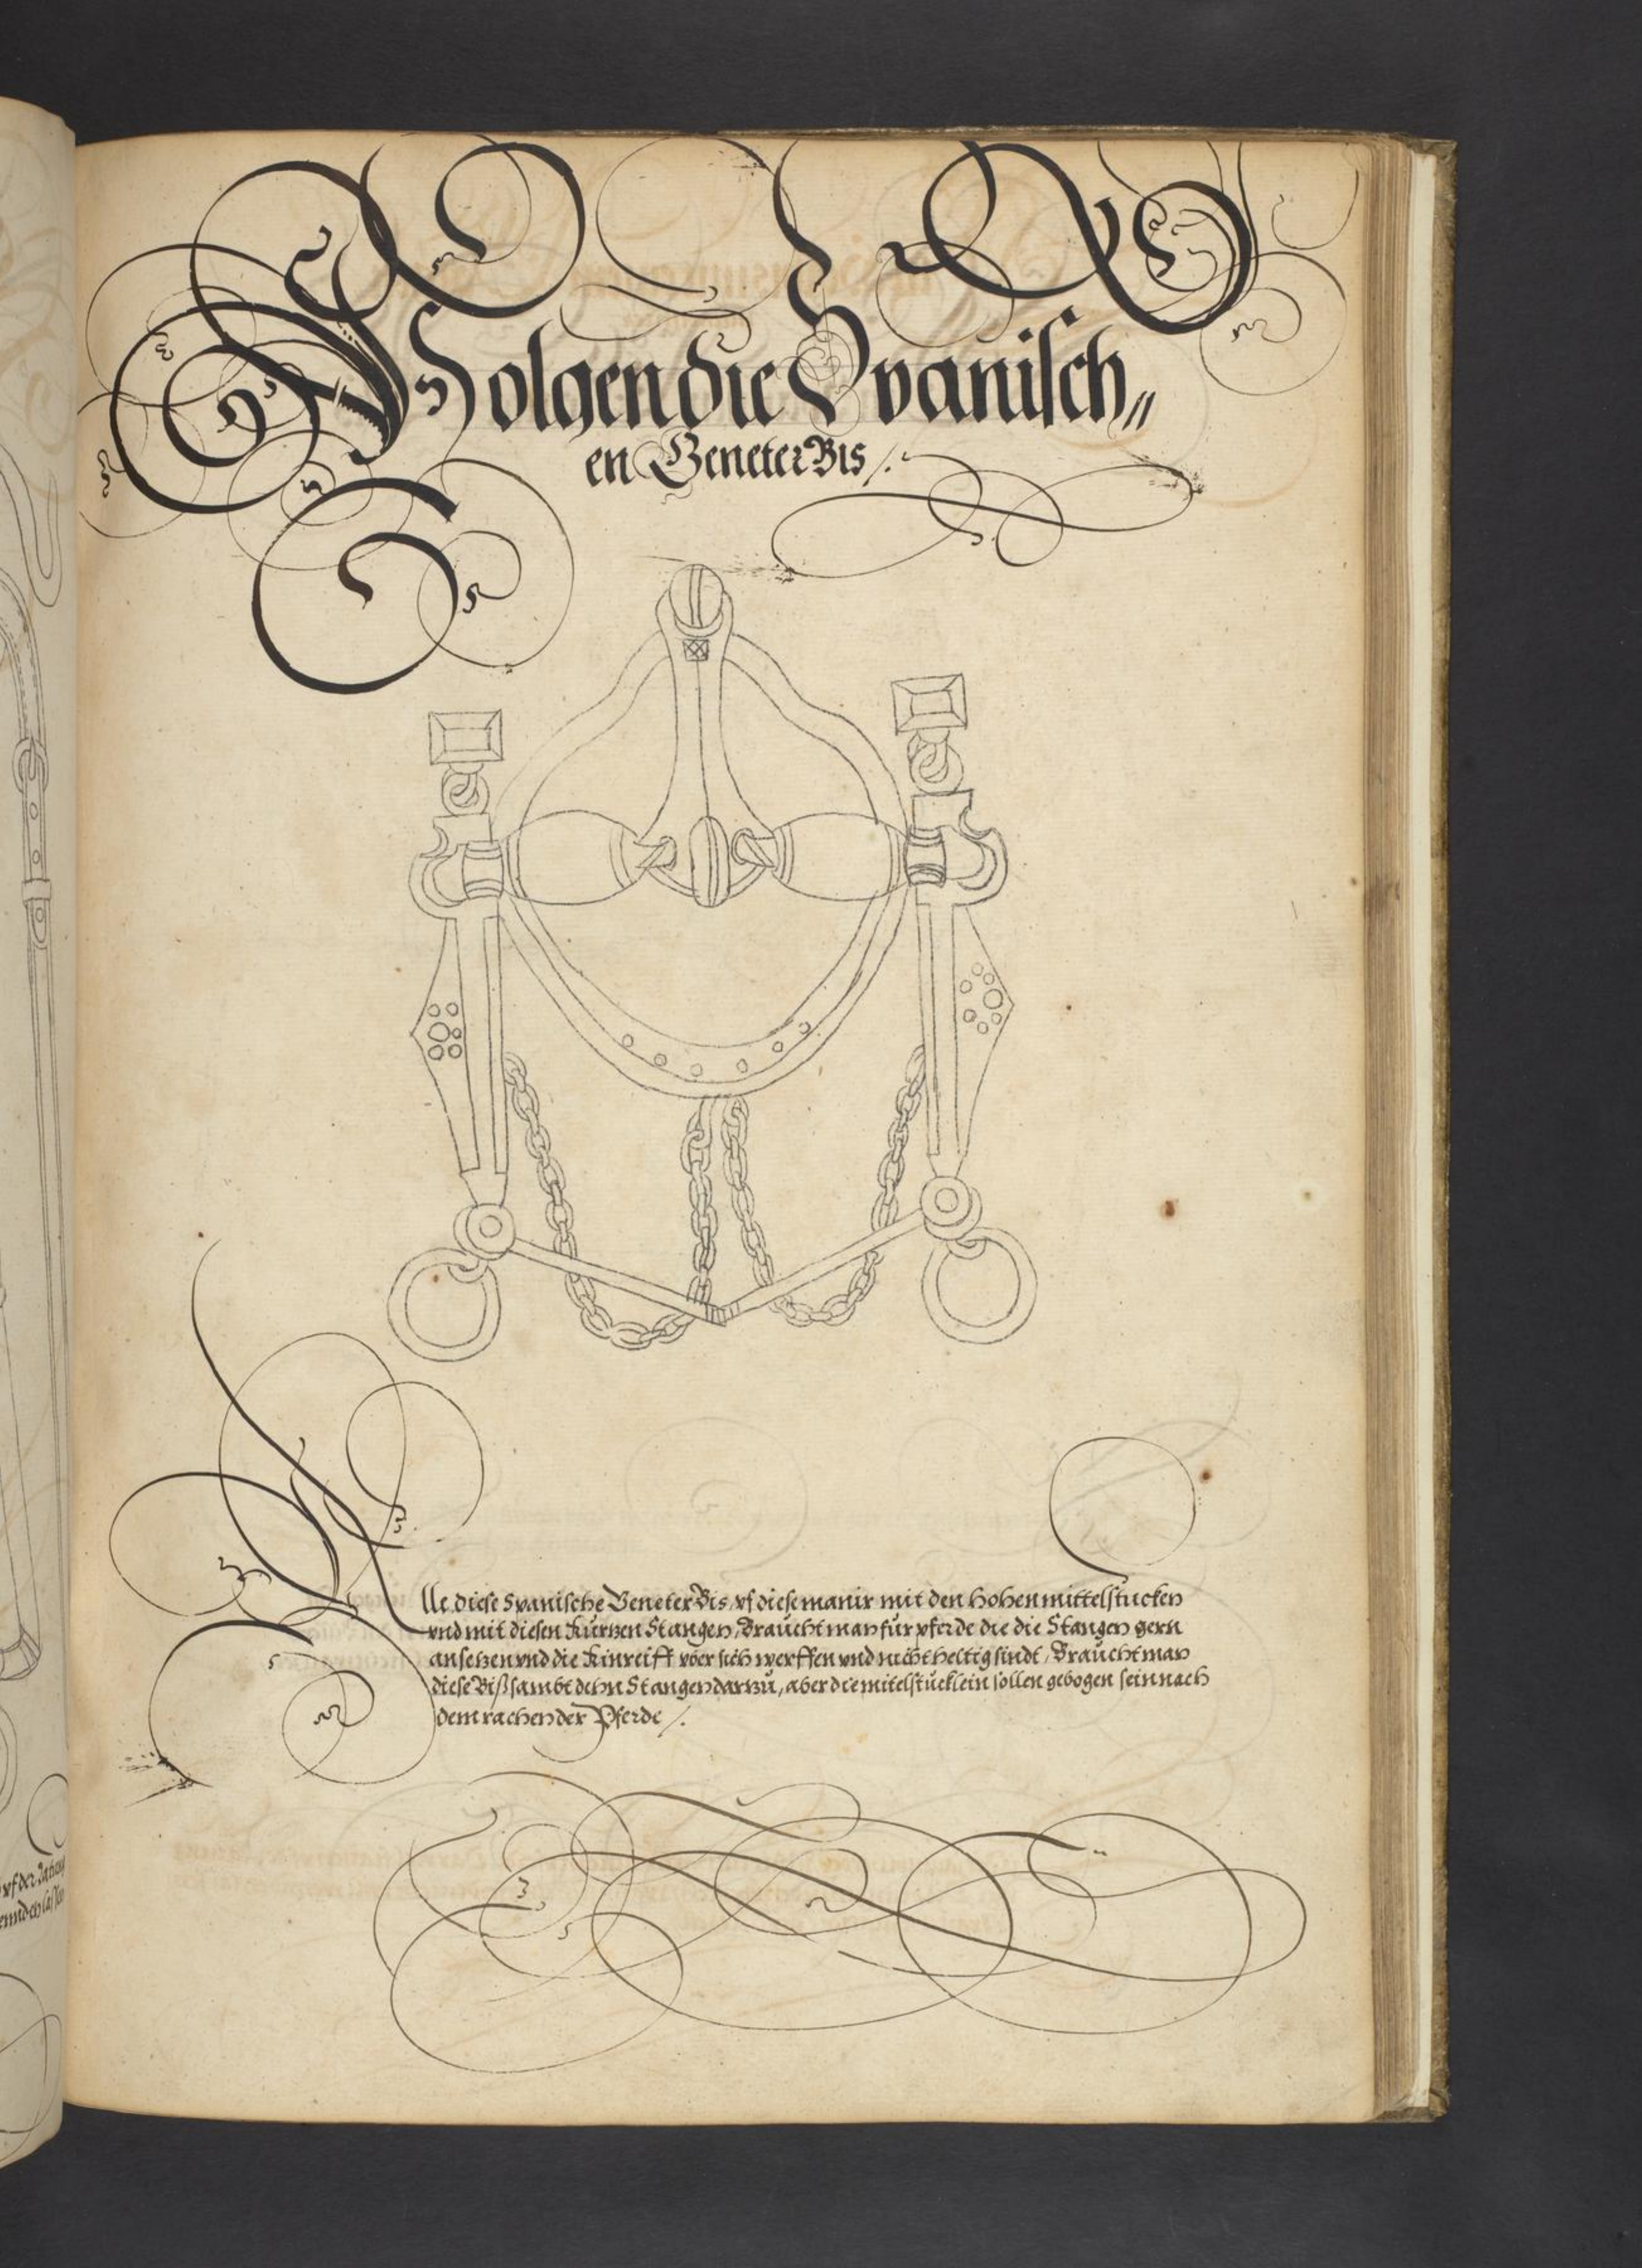 Folgen die Spanisch„
en Geneter Bis /.
Alle diese Spanische Geneter Bis, vf diese manir mit den hohen mittelstucken
vnd mit diesen kurtzen Stangen, Braucht man fur pferde die die Stangen gern
ansetzen vnd die kinreiff vber sich werffen vnd nicht heltig sindt, Braucht man
diese Biß sambt dehn Stangen dartzu, aber die mitelstucklein sollen gebogen sein nach
dem rachen der Pferde /.
vf der